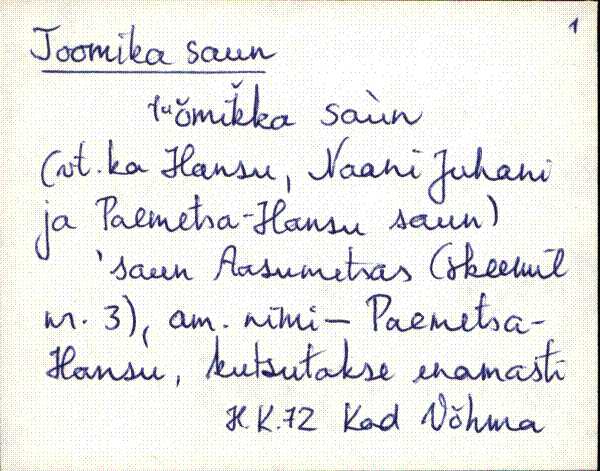 1
Joomika saun
tuŏmiǩka saùn
(vt. ka Hansu, Naani Juhani
ja Paemetsa-Hansu saun)
'saun Aasumetsas (skeemil
nr. 3), am. nimi – Paemetsa-
Hansu, kutsutakse enamasti
H.K.72 Kad Võhma